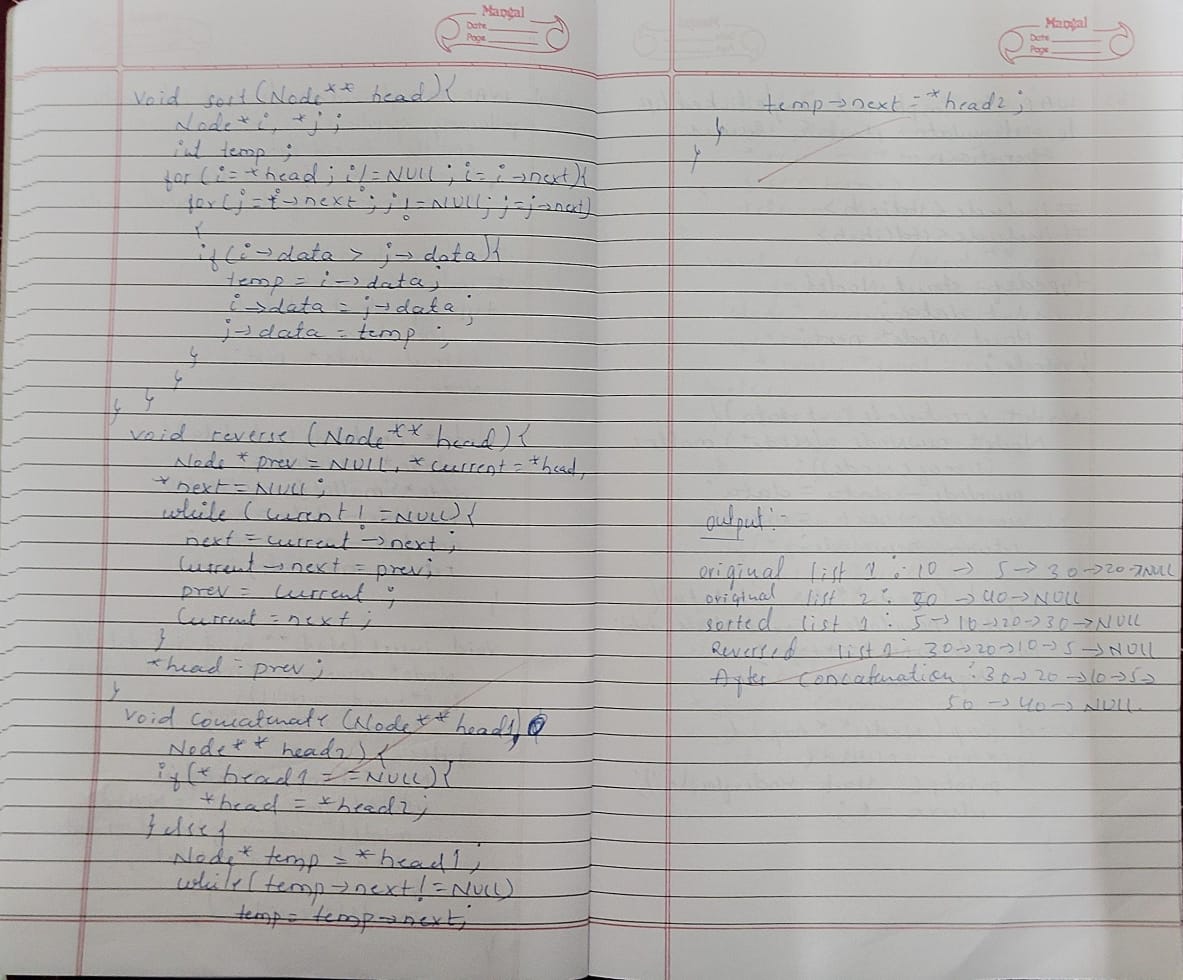 Mangal
Date
Page
void sort (Node** head){
Node *i, *j ;
int temp ;
for (i= *head ; i!=NULL ; i= i->next){
for(j=i->next ; j!=NULL; j=j->next)
{
if(i->data > j-> data){
temp = i-> data;
i->data = j->data ;
j->data = temp ;
}
}
}
}
void reverse (Node** head){
Node * prev = NULL, * current = *head,
*next = NULL ;
while (curent != NULL){
next = current ->next ;
Current ->next = prev;
prev = current ;
Current = next ;
}
*head = prev ;
}
void concatenate (Node** head1,
Node** head2) {
if(* head1 = =NULL){
*head = *head2 ;
} else {
Node* temp = *head1 ;
while(temp->next != NULL)
temp = temp->next;
Mangal
Date
Page
temp->next = *head2 ;
}
}
output :-
original list 1 : 10 -> 5-> 30->20->NULL
original list 2 : 50 ->40->NULL
sorted list 1 : 5->10->20->30->NULL
Reversed list 1 : 30->20->10->5->NULL
After Concatenation : 30-> 20 ->10->5->
50 ->40-> NULL.